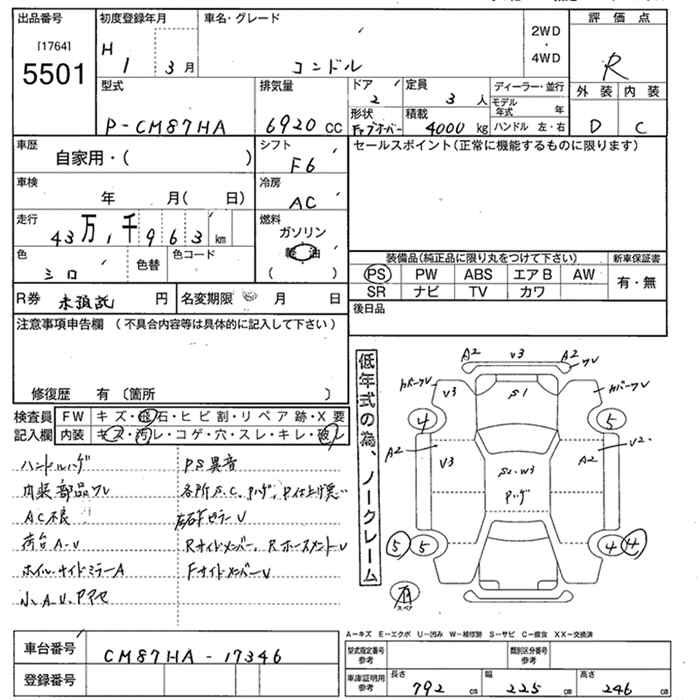 出品番号 初度登録年月 車名・グレード 2WD・4WD 評価点
[1764]
5501
H 1 3月 コンドル R
型式 排気量 ドア 定員 ディーラー・並行 外装 内装
2 3人 モデル年式 年
P-CM87HA 6920cc 形状 積載 4000kg ハンドル 左・右 D C
車歴 シフト セールスポイント(正常に機能するものに限ります)
自家用・( ) F6
車検 冷房
年 月( 日) AC
走行 燃料
43万1千963km ガソリン
軽油
色 色替 色コード ( )
シロ
装備品(純正品に限り丸をつけて下さい) 新車保証書
PS PW ABS エアB AW 有・無
SR ナビ TV カワ
R券 未預託 円 名変期限 月 日 後日品
注意事項申告欄 (不具合内容等は具体的に記入して下さい)
修復歴 有 〔箇所 〕
検査員記入欄 FW キズ・飛石・ヒビ割・リペア跡・X要
内装 キズ・汚レ・コゲ・穴・スレ・キレ・破レ
ハンドルハゲ PS異音
内装部品ワレ
AC不良
荷台A・U
ホイル・サイドミラーA
低年式の為、ノークレーム
A2 V3 A2 ワレ
カバーワレ V3 S1 カバーワレ
4 5
A2 V3 A2 V2
S1・W3
Pハゲ
5 5 4 4
スペア
A-キズ E-エクボ U-凹み W-補修跡 S-サビ C-腐食 XX-交換済
車台番号 CM87HA-17346 型式指定番号参考 類別区分番号参考
登録番号 車庫証明用参考 長さ 792cm 幅 225cm 高さ 246cm